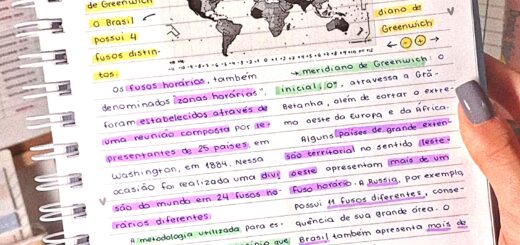 de Greenwich
O Brasil
possui 4
fusos distin-
tos.
diano de
Greenwich
Os fusos horários, também
denominados "zonas horárias",
foram estabelecidos através de
uma reunião composta por re-
presentantes de 25 países em
Washington, em 1884. Nessa
ocasião foi realizada uma divi
são do mundo em 24 fusos ho-
rários diferentes
A metodologia utilizada para es-
que
meridiano de Greenwich O
inicial, 0°, atravessa a Grã-
Bretanha, além de cortar o extre-
mo oeste da Europa e da África.
Alguns países de grande exten-
são territorial no sentido leste-
oeste apresentam mais de um
fuso horário. A Rússia, por exemplo,
possui 11 fusos diferentes, conse-
quência de sua grande área. O
Brasil também apresenta mais de